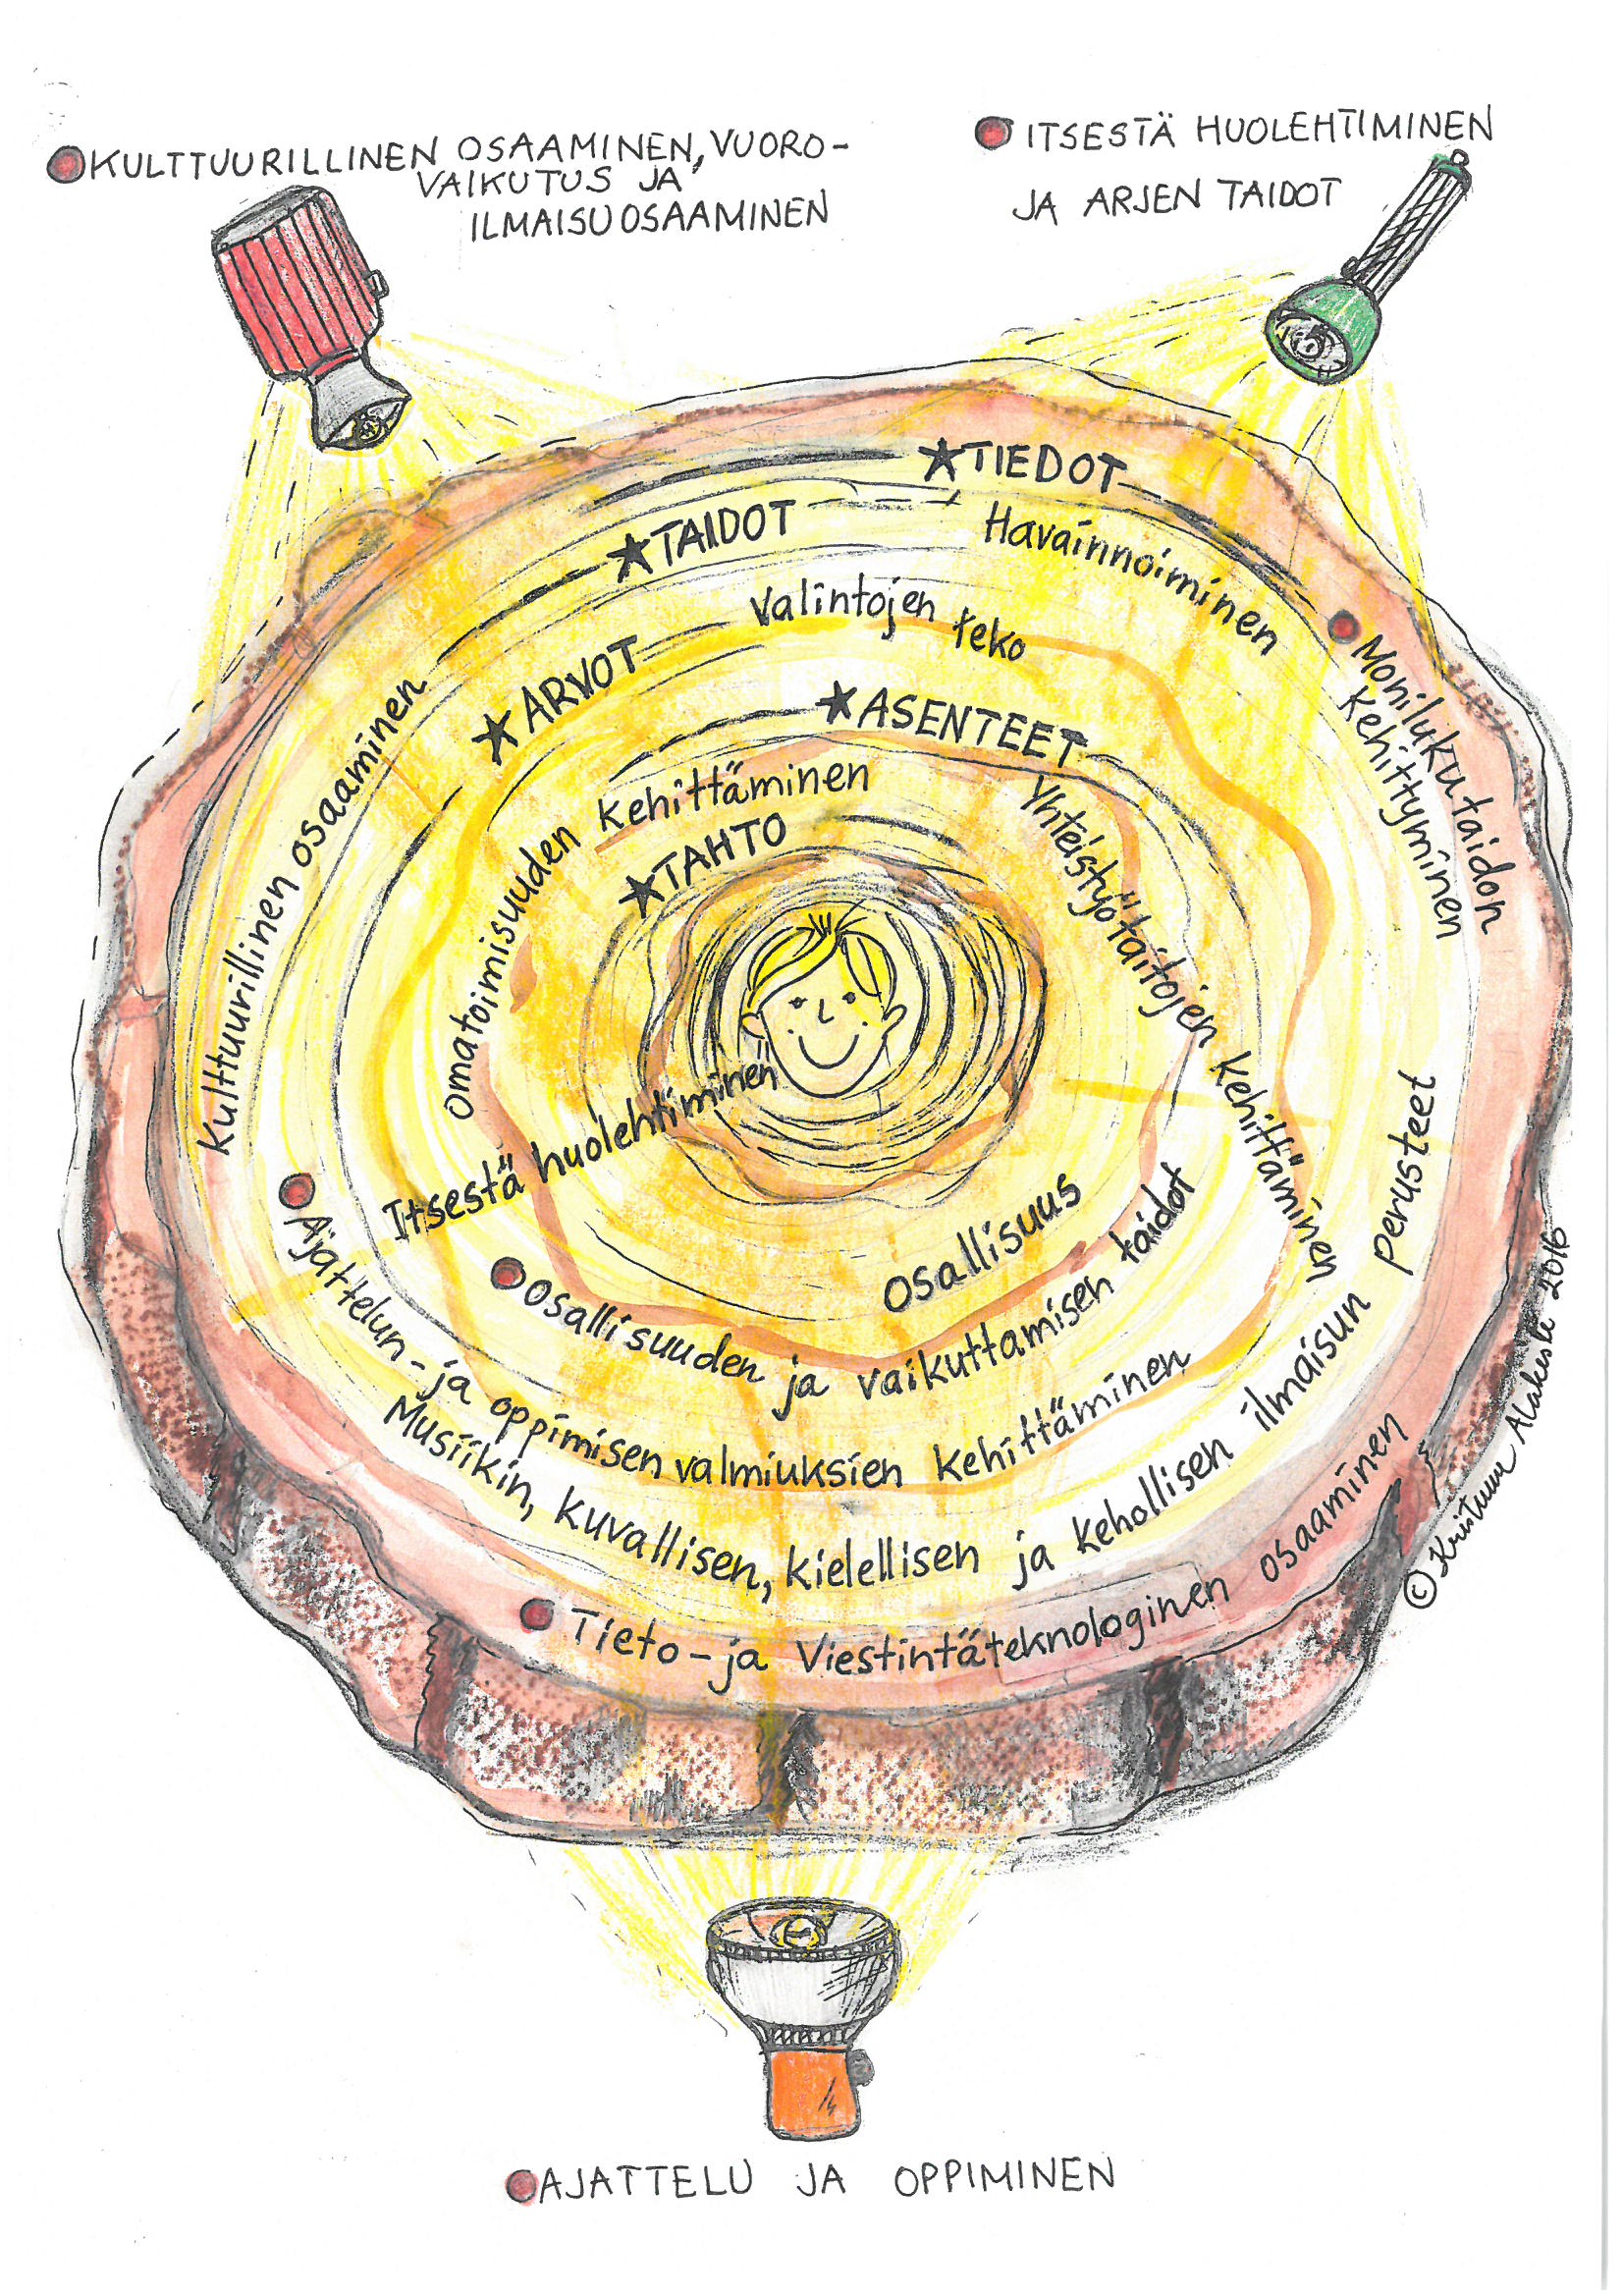 KULTTUURILLINEN OSAAMINEN, VUORO-
VAIKUTUS JA
ILMAISUOSAAMINEN
ITSESTÄ HUOLEHTIMINEN
JA ARJEN TAIDOT
TIEDOT
TAIDOT
Havainnoiminen
Valintojen teko
ARVOT
ASENTEET
Monilukutaidon
kehittyminen
Kulttuurillinen osaaminen
Omatoimisuuden kehittäminen
TAHTO
Yhteistyötaitojen kehittäminen
Itsestä huolehtiminen
Osallisuus
Osallisuuden ja vaikuttamisen taidot
Ajattelun- ja oppimisen valmiuksien kehittäminen
Musiikin, kuvallisen, kielellisen ja kehollisen ilmaisun perusteet
Tieto-ja Viestintäteknologinen osaaminen
© 2016
AJATTELU JA OPPIMINEN